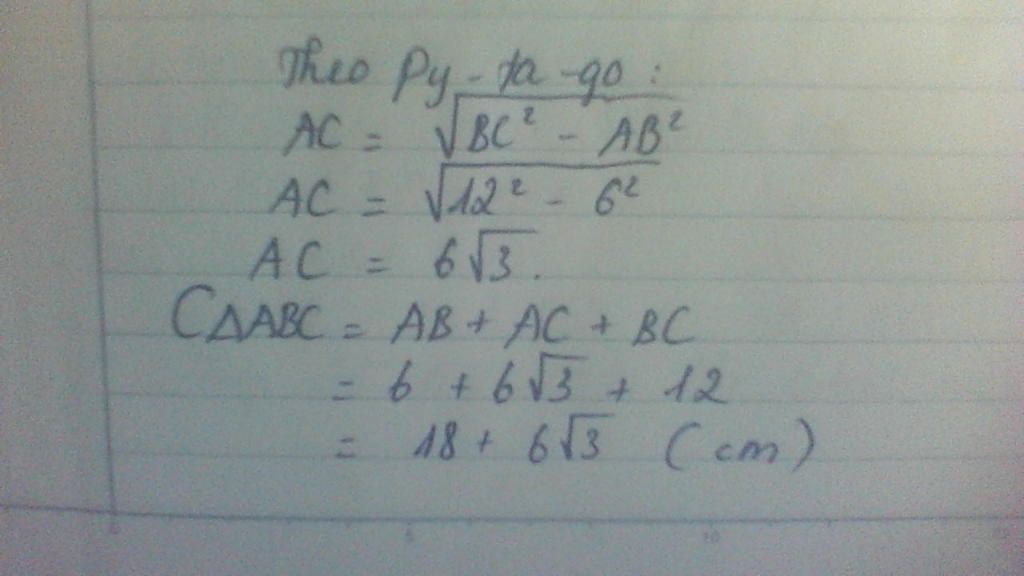 Theo Py-ta-go:
AC = √BC² - AB²
AC = √12² - 6²
AC = 6√3.
C△ABC = AB + AC + BC
= 6 + 6√3 + 12
= 18 + 6√3 (cm)
5 10